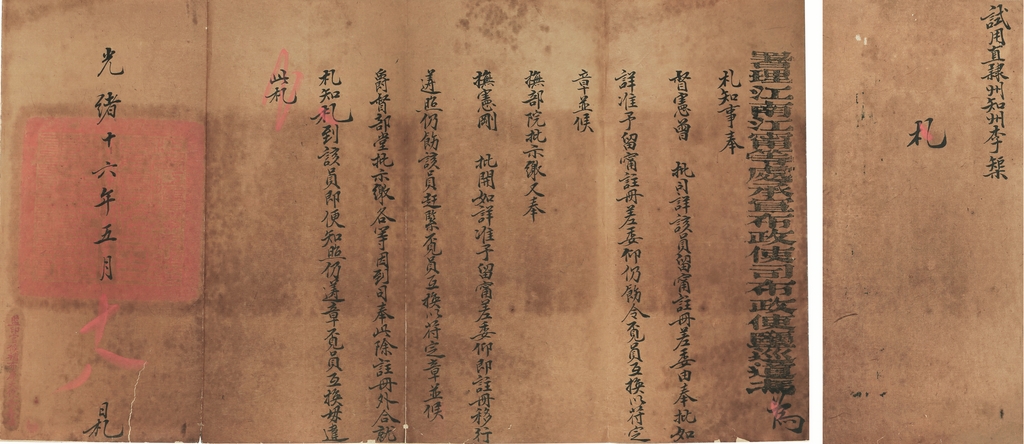 試用直隸州知州李榘
札
署理江南江甯等處承宣布政使司布政使鹽巡道 為
札知事奉
督憲曾 批司詳該員留甯註冊差委由奉批如
詳准予留甯註冊差委仰仍飭令覓員互換以符定
章並候
撫部院批示繳又奉
撫憲剛 批開如詳准予留甯差委仰即註冊移行
遵照仍飭該員赶緊覓員互換以符定章並候
爵督部堂批示繳各等因到司奉此除註冊外合就
札知札到該員即便知照仍遵章覓員互換毋違
此札
光緒十六年五月 日札